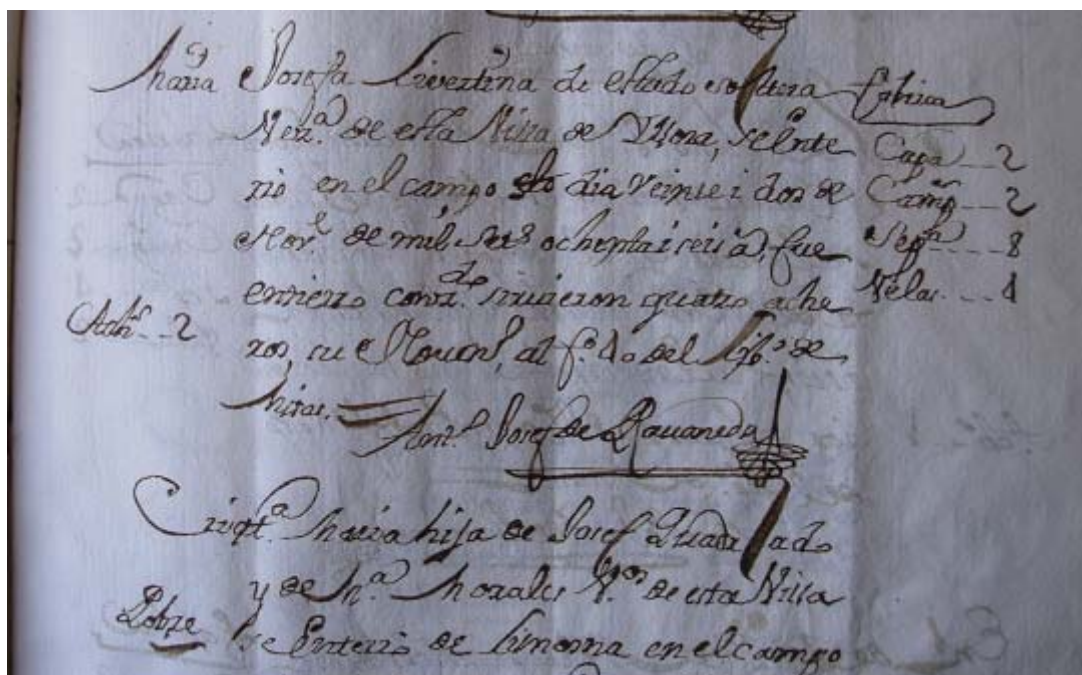 Maria Josefa Livertina de estado soltera
Vez.ª de esta Villa de Yllora, se Ente
rro en el campo sto dia Veinte i dos de
Nov.e de mil Set.s ochenta i seis a.s fue
entierro conz.do sirvieron quatro ache
ros, su Novens, al f.o 40 del Lib.o de
Misas.
Ant.o Josef de Ravaneda
Fabrica
Capa 2
Camp.s 2
Sep.a 8
Velas 4
Ach.s 2
Crispt.a Maria hija de Josef Quadrado
y de M.a Morales V.os de esta Villa
Se Enterro de Limosna en el campo
Pobre